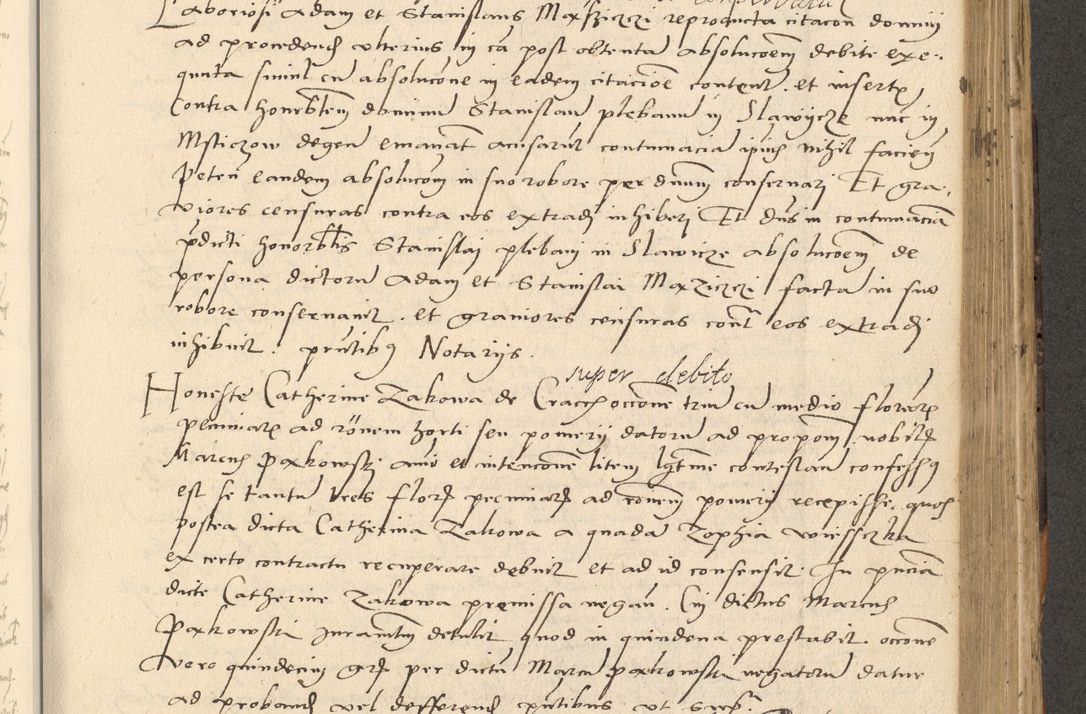 Laboriosi Adam et Stanislaus Maxziczi reproducta citacon domini
ad procedend ulterius in ca post obtenta absolucoem debite exe-
quuta simul cu absolucone in eadem citacioe content. et insert
Contra honorblem dominu Stanislau plebanu in Slawicze nunc in
Msticzow degen emanat acusarut contumacia ipius nihil facien
Peten eandem absolucom in suo robore per dnum conservari Et gra-
viores censuras contra eos extradi inhiberi Et dns in contumaciã
pdicti honorblis Stanislai plebani in Slawicze absolucoem de
persona dictoru Adam et Stanislai Maxziczi facta in suo
robore conservavit. et graviores censuras cont eos extradi
inhibuit. pntibus Notarijs.
super debito
Honeste Catherine Zakowa de Cracch occone triu cu medio floren
pecuniar ad ronem horti seu pomerij datoru ad propom nobilis
Marcus Paxkowski aio et intencone litem lgtme contestan confessus
est se tantu tres flor pecuniar ad ronem pomerij recepisse, quos
postea dicta Catherina Zakowa a quada Zophia Wiessczka
ex certo contractu recuperare debuit et ad id consensit. In pnciã
dicte Catherine Zakowa premissa negan. Cui dictus Marcus
Paxkowski juramtum detulit quod in quindena prestabit. occone
vero quindecim gr per dictu Marcu Paxkowski negatoru datur
ad proband vel defferend pntibus ut supra